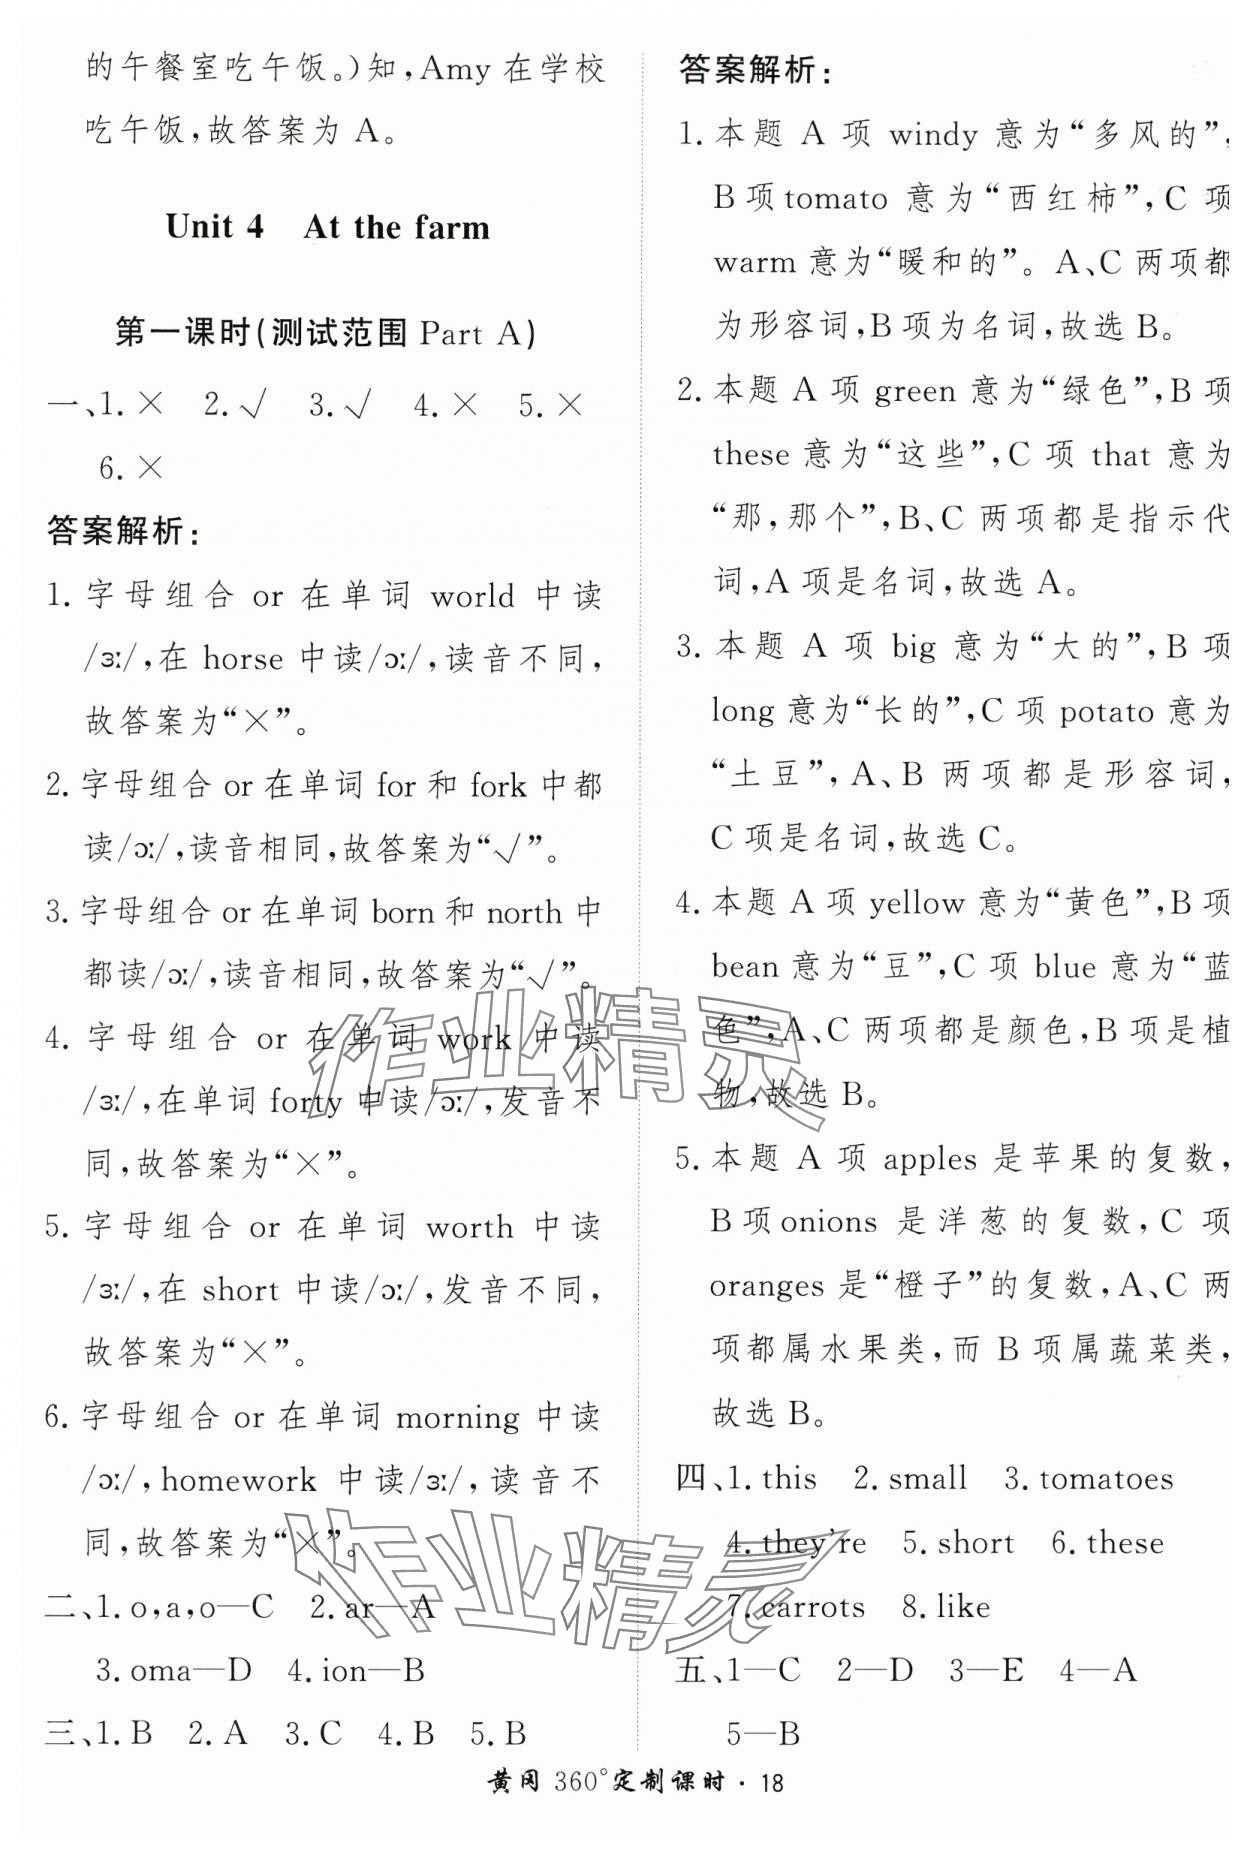 的午餐室吃午饭。)知,Amy在学校
吃午饭,故答案为 A。
Unit 4 At the farm
第一课时(测试范围 Part A)
一、1. × 2. √ 3. √ 4. × 5. ×
6. ×
答案解析:
1. 字母组合 or 在单词 world 中读
/ɜː/,在 horse 中读/ɔː/,读音不同,
故答案为“×”。
2. 字母组合 or 在单词 for 和 fork 中都
读/ɔː/,读音相同,故答案为“√”。
3. 字母组合 or 在单词 born 和 north 中
都读/ɔː/,读音相同,故答案为“√”。
4. 字母组合 or 在单词 work 中读
/ɜː/,在单词 forty 中读/ɔː/,发音不
同,故答案为“×”。
5. 字母组合 or 在单词 worth 中读
/ɜː/,在 short 中读/ɔː/,发音不同,
故答案为“×”。
6. 字母组合 or 在单词 morning 中读
/ɔː/,homework 中读/ɜː/,读音不
同,故答案为“×”。
二、1. o,a,o—C 2. ar—A
3. oma—D 4. ion—B
三、1. B 2. A 3. C 4. B 5. B
答案解析:
1. 本题 A 项 windy 意为“多风的”,
B 项 tomato 意为“西红柿”,C 项
warm 意为“暖和的”。A、C 两项都
为形容词,B 项为名词,故选 B。
2. 本题 A 项 green 意为“绿色”,B 项
these 意为“这些”,C 项 that 意为
“那,那个”,B、C 两项都是指示代
词,A 项是名词,故选 A。
3. 本题 A 项 big 意为“大的”,B 项
long 意为“长的”,C 项 potato 意为
“土豆”,A、B 两项都是形容词,
C 项是名词,故选 C。
4. 本题 A 项 yellow 意为“黄色”,B 项
bean 意为“豆”,C 项 blue 意为“蓝
色”,A、C 两项都是颜色,B 项是植
物,故选 B。
5. 本题 A 项 apples 是苹果的复数,
B 项 onions 是洋葱的复数,C 项
oranges 是“橙子”的复数,A、C 两
项都属水果类,而 B 项属蔬菜类,
故选 B。
四、1. this 2. small 3. tomatoes
4. they're 5. short 6. these
7. carrots 8. like
五、1—C 2—D 3—E 4—A
5—B
黄冈 360°定制课时·18
作业精灵
作业精灵